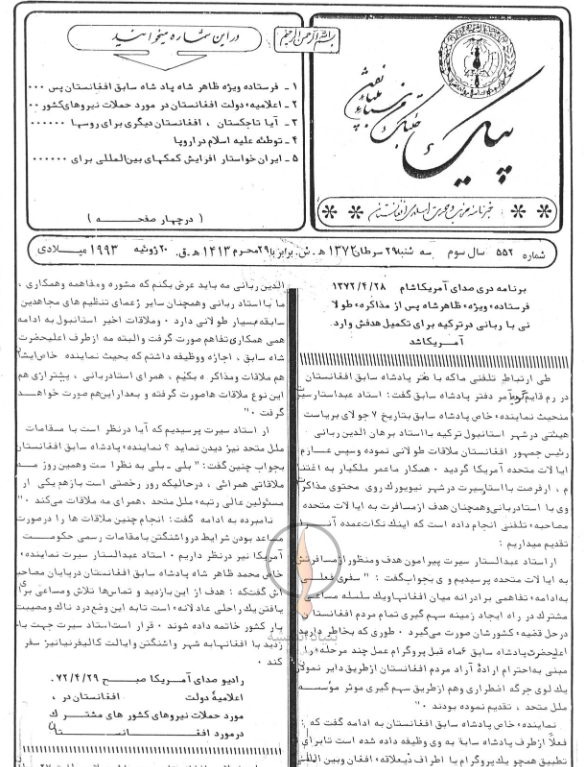 بسم الله الرحمن الرحیم
در این شماره میخوانید
۱ ـ فرستاده ویژه ظاهر شاه پاد شاه سابق افغانستان پس ۰۰۰
۲ ـ اعلامیه دولت افغانستان در مورد حملات نیروهای کشور ۰۰
۳ ـ آیا تاجکستان ، افغانستان دیگری برای روسها ۰۰۰۰۰۰
۴ ـ توطئه علیه اسلام در اروپا
۵ ـ ایران خواستار افزایش کمکهای بین‌المللی برای ۰۰۰۰۰۰
( در چهار صفحه )
پیک
شماره ۵۵۲ سال سوم سه شنبه ۲۹ سرطان ۱۳۷۲ هـ.ش. برابر با ۲۹ محرم ۱۴۱۳ هـ.ق. ۲۰ ژوئیه ۱۹۹۳ میلادی
برنامه دری صدای آمریکا شام ۱۳۷۲/۴/۲۸
فرستاده ویژه ظاهر شاه پس از مذاکره طولا
نی با ربانی در ترکیه برای تکمیل هدفش وارد
آمریکا شد
طی ارتباط تلفنی ما که با دفتر پادشاه سابق افغانستان
در رم قایم آمر دفتر پادشاه سابق گفت: استاد عبدالستار سیرت
منحیث نماینده خاص پادشاه سابق بتاریخ ۷ جولای بریاست
هیئتی در شهر استانبول ترکیه با استاد برهان الدین ربانی
رئیس جمهور افغانستان ملاقات طولانی نموده و سپس عازم
ایالات متحده آمریکا گردید ۰ همکار ما عمر ملکیار به اغتنا
م ، از فرصت با استاد سیرت در شهر نیویورک روی محتوی مذاکر
وی با استاد ربانی و همچنان هدف از مسافرت به ایالات متحده
مصاحبه تلفنی انجام داده است که اینک نکات عمده آنرا
تقدیم میداریم :
از استاد عبدالستار سیرت پیرامون هدف و منظور از مسافرتش
به ایالات متحده پرسیدیم وی بجواب گفت : " سفر فعلی
به ادامه تفاهمی برادرانه میان افغانها و یک سلسله مساعی
مشترک در راه ایجاد زمینه سهم گیری تمام مردم افغانستان
در حل قضیه کشورشان صورت می‌گیرد ۰ طوری که بخاطر دارید
اعلیحضرت پادشاه سابق ۶ ماه قبل پروگرام عمل چند مرحله را
مبنی به احترام اراده آزاد مردم افغانستان از طریق دایر نمودن
یک لوی جرگه اضطراری و هم از طریق سهم گیری موثر مؤسسه
ملل متحد ، تقدیم نموده بودند ۰"
نماینده خاص پادشاه سابق افغانستان به ادامه گفت که :
فعلاً از طرف پادشاه سابق به وی وظیفه داده شده است تا برای
تطبیق همچو یک پروگرام با اطراف ذیعلاقه افغان و بین المللی
الدین ربانی مه باید عرض بکنم که مشوره و مفاهمه و همکاری ،
ما با استاد ربانی و همچنان سایر زعمای تنظیم های مجاهدین
سابقه بسیار طولانی دارد ۰ و ملاقات اخیر استانبول به ادامه
همی همکاری تفاهم صورت گرفت و البته مه از طرف اعلیحضرت
شاه سابق ، اجازه و وظیفه داشتم که بحیث نماینده خاص ایشان
هم ملاقات و مذاکره بکنیم ، همرای استاد ربانی ، پیشتر ازی هم
این نوع ملاقات ها صورت گرفته و بعد از این هم صورت خواهد
گرفت ۰"
از استاد سیرت پرسیدیم که آیا در نظر است با مقامات
ملل متحد نیز دیدن نماید ؟ نماینده پادشاه سابق افغانستان
بجواب چنین گفت : " بلی ـ بلی به نظر است و همین روز مه
ملاقاتی همرائی ، در حالیکه روز رخصتی است باز هم یکی از
مسئولین عالی رتبه ملل متحد ، همرای مه ملاقات می‌کند ۰"
نامبرده به ادامه گفت : انجام چنین ملاقات ها را در صورت
مساعد بودن شرایط در واشنگتن با مقامات رسمی حکومت
آمریکا نیز در نظر داریم ۰ استاد عبدالستار سیرت نماینده
خاص محمد ظاهر شاه پادشاه سابق افغانستان در پایان مصاحبه
اش گفت که : هدف از این بازدید و تماس‌ها تلاش و مساعی برای
یافتن یک راه حل عادلانه است تا به این وضع درد ناک و مصیبت
بار کشور خاتمه داده شود ۰ قرار است استاد سیرت جهت با
زدید با افغانها به شهر واشنگتن و ایالت کالیفرنیا نیز سفر
کند ۰
رادیو صدای آمریکا صبح ۷۲/۴/۲۹
اعلامیهٔ دولت افغانستان در ،
مورد حملات نیروهای کشور های مشترک
در مورد افغانستان